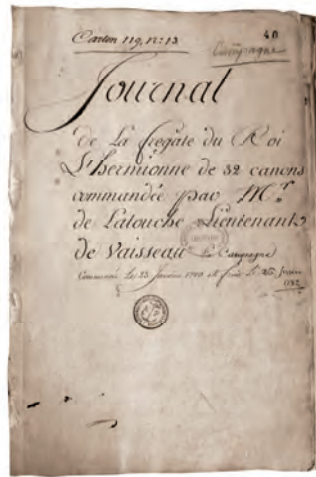 Carton 119, n.º 13
40
Campagne
Journal
de La fregate du Roi
L'hermionne de 32 canons
commandée par M.r
de Latouche Lieutenant
de Vaisseau La Campagne
Commencé Le 23 1780 et finie Le
1782